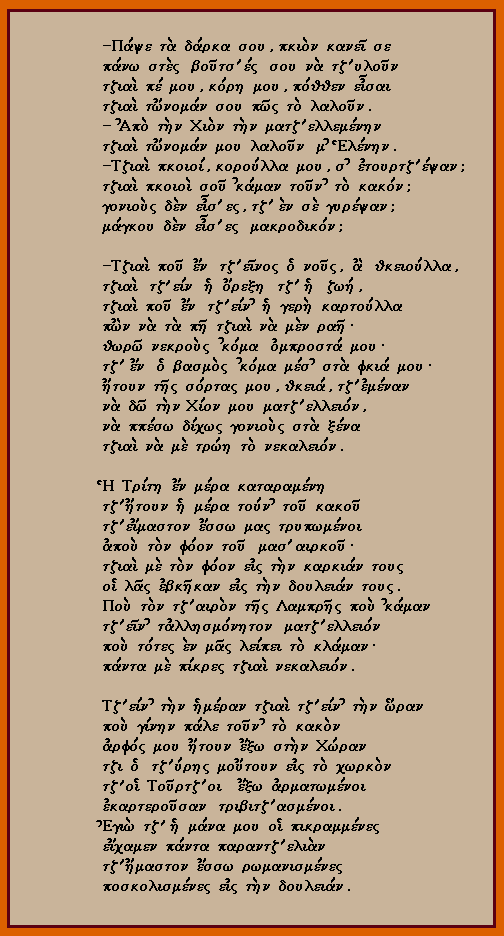 –Πάψε τὰ δάρκα σου, πκιὸν κανεῖ σε
πάνω στὲς βοῦτσ’ές σου νὰ τζ’υλοῦν
τζιαὶ πέ μου, κόρη μου, πόθθεν εἶσαι
τζιαὶ τὤνομάν σου πῶς τὸ λαλοῦν.
– Ἀπὸ τὴν Χιὸν τὴν ματζ’ελλεμένην
τζιαὶ τὤνομάν μου λαλοῦν μ’ Ἑλένην.
–Τζιαὶ πκοιοί, κορούλλα μου, σ’ ἐτουρτζ’έψαν;
τζιαὶ πκοιοὶ σοῦ ’κάμαν τοῦν’ τὸ κακόν;
γονιοὺς δὲν εἶσ’ες, τζ’ ἐν σὲ γυρέψαν;
μάγκου δὲν εἶσ’ες μακροδικόν;

–Τζιαὶ ποῦ ἔν τζ’εῖνος ὁ νοῦς, ἂ θκειούλλα,
τζιαὶ τζ’είν ἡ ὄρεξη τζ’ ἡ ζωή,
τζιαὶ ποῦ ἔν τζ’είν’ ἡ γερὴ καρτούλλα
πὢν νὰ τὰ πῆ τζιαὶ νὰ μὲν ραῆ·
θωρῶ νεκροὺς ’κόμα ὀμπροστά μου·
τζ’ ἔν ὁ βασμὸς ’κόμα μέσ’ στὰ φκιά μου·
ἤτουν τῆς σόρτας μου, θκειά, τζ’ ἐμέναν
νὰ δῶ τὴν Χίον μου ματζ’ελλειόν,
νὰ ππέσω δίχως γονιοὺς στὰ ξένα
τζιαὶ νὰ μὲ τρώη τὸ νεκαλειόν.

Ἡ Τρίτη ἔν μέρα καταραμένη
τζ’ ἤτουν ἡ μέρα τούν’ τοῦ κακοῦ
τζ’ εἴμαστον ἔσσω μας τρυπωμένοι
ἀποὺ τὸν φόον τοῦ μασ’αιρκοῦ·
τζιαὶ μὲ τὸν φόον εἰς τὴν καρκιάν τους
οἱ λᾶς ἐβκῆκαν εἰς τὴν δουλειάν τους.
Ποὺ τὸν τζ’αιρὸν τῆς Λαμπρῆς ποὺ ’κάμαν
τζ’εῖν’ τἀλλησμόνητον ματζ’ελλειόν
ποὺ τότες ἐν μᾶς λείπει τὸ κλάμαν·
πάντα μὲ πίκρες τζιαὶ νεκαλειόν.

Τζ’είν’ τὴν ἡμέραν τζιαὶ τζ’είν’ τὴν ὥραν
ποὺ γίνην πάλε τοῦν’ τὸ κακὸν
ἀρφός μου ἤτουν ἔξω στὴν Χώραν
τζι ὁ τζ’ύρης μοὔτουν εἰς τὸ χωρκὸν
τζ’ οἱ Τοῦρτζ’οι ἔξω ἀρματωμένοι
ἐκαρτεροῦσαν τριβιτζ’ασμένοι.
Ἐγιὼ τζ’ ἡ μάνα μου οἱ πικραμμένες
εἴχαμεν πάντα παραντζ’ελιὰν
τζ’ ἤμαστον ἔσσω ρωμανισμένες
ποσκολισμένες εἰς τὴν δουλειάν.